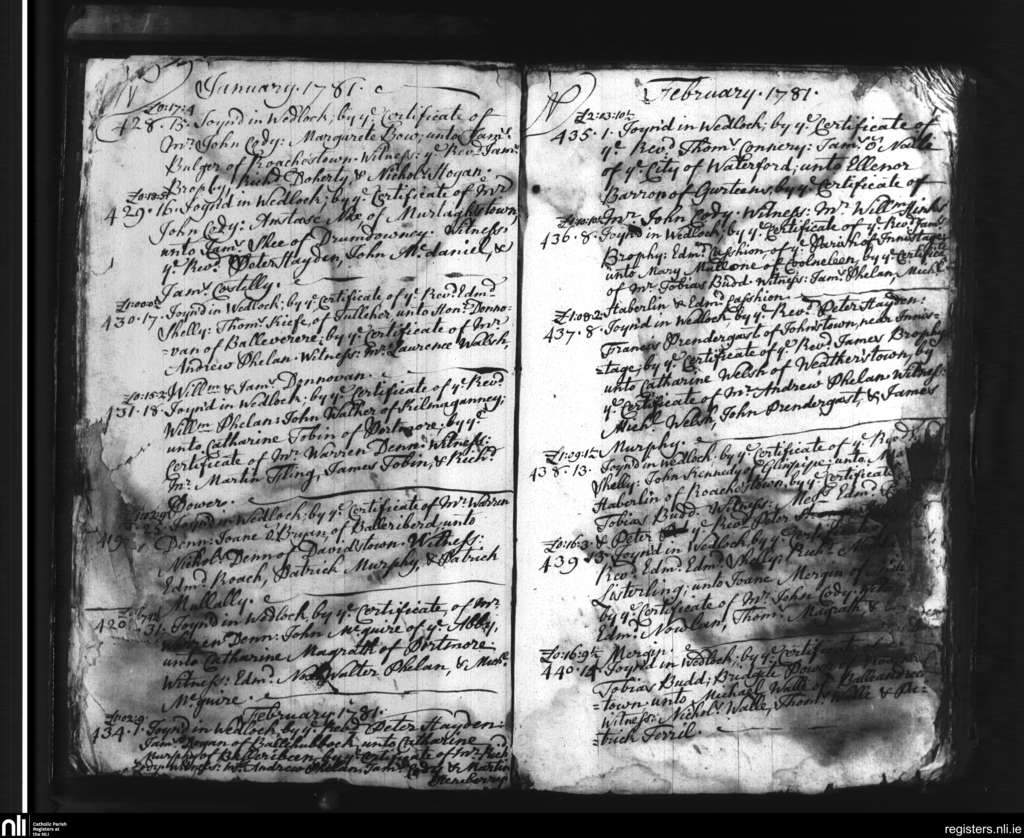 January. 1781.
£0:17:4
428. 15. Joyn'd in Wedlock; by yᵉ Certificate of
Mʳ John Cody: Margarete Bow, unto Jamˢ
Bulger of Roachestown. Witness: yᵉ Revᵈ Jamˢ
Brophy, Richᵈ Doherty & Nicholˢ Hogan:
429. 16. Joyn'd in Wedlock; by yᵉ Certificate of Mʳ
John Cody: Anstace Nee of Murlaghstown
unto Jamˢ Shee of Drumdowney. Witness:
yᵉ Revᵈ Peter Hayden, John Mᶜdaniel, &
Jamˢ Costilly:
430. 17. Joyn'd in Wedlock; by yᵉ Certificate of yᵉ Revᵈ Edmᵈ
Shelly: Thomˢ Kiefe, of Tulleher unto Honʳ Donno-
=van of Balleverere; by yᵉ Certificate of Mʳ
Andrew Phelan. Witness: Mʳ Laurence Walsh,
Willᵐ & Jamˢ Donnovan.
431. 18. Joyn'd in Wedlock; by yᵉ Certificate of yᵉ Revᵈ
Willᵐ Phelan: John Father of Kilmaganney;
unto Catharine Tobin of Portmore; by yᵉ
Certificate of Mʳ Warren Denn: Witness:
Mʳ Martin Fling, James Tobin, & Richᵈ
Power.
Joyn'd in Wedlock; by yᵉ Certificate of Mʳ Warren
Denn: Joane ô Bryan, of Balleriberd, unto
Nicholˢ Denn of Davidstown. Witness:
Edmᵈ Roach, Patrick Murphy, & Patrick
Mullally:
420. 31. Joyn'd in Wedlock, by yᵉ Certificate, of Mʳ
Warren Denn: John Mᶜguire of yᵉ Abby,
unto Catharine Magrath of Portmore
Witness: Edmᵈ Walter Phelan, & Michˡ
Mᶜguire.
February. 1781.
£1:02:9
434. 1. Joyn'd in Wedlock, by yᵉ Revᵈ Peter Hayden:
Jamˢ Regan of unto Catharine
Murphy of by yᵉ Certificate of Mʳ Rich
Witness: Mʳ Andrew Phelan, Jamˢ Cody & Martin

February. 1781.
£2:13:10½
435. 1. Joyn'd in Wedlock; by yᵉ Certificate of
yᵉ Revᵈ Thomˢ Connery: Jamˢ ô Neile
of yᵉ City of Waterford; unto Ellenor
Barron of Gurteens, by yᵉ Certificate of
Mʳ John Cody. Witness: Mʳ Willᵐ
436. 8. Joyn'd in Wedlock; by yᵉ Certificate of yᵉ Revᵈ Jamˢ
Brophy: Edmᵈ Cashion, of yᵉ Parish of Innistage
unto Mary Mullone of Coolneleen, by yᵉ Certificate
of Mʳ Tobias Budd. Witness: Jamˢ Phelan, Michˡ
Haberlin & Edmᵈ Cashion.
£1:08:2
437. 8. Joyn'd in Wedlock; by yᵉ Revᵈ Peter Hayden:
Francis Prendergast of Johnstown, near Innis-
=tage; by yᵉ Certificate of yᵉ Revᵈ James Brophy
unto Catharine Welsh of Weatherstown, by
yᵉ Certificate of Mʳ Andrew Phelan. Witness:
Michˡ Welsh, John Prendergast, & James
Murphy:
438. 13. Joyn'd in Wedlock; by yᵉ Certificate of yᵉ Revᵈ
Shelly: John Kennedy of Glinpipe; unto
Haberlin of Roachestown, by yᵉ Certificate
Tobias Budd. Witness: Messʳˢ Edmᵈ
& Peter yᵉ Revᵈ Peter
£0:16:3
439. 13. Joyn'd in Wedlock by yᵉ Certificate
Revᵈ Edmᵈ Shelly: Richᵈ
Listerling; unto Joane Mergin of
by yᵉ Certificate of Mʳ John Cody:
Edmᵈ Nowlan, Thomˢ Magrath &
Mergin.
£0:16:9½
440. 14. Joyn'd in Wedlock; by yᵉ Certificate
Tobias Budd; Bridgete Power of
=town unto Michael Walle of
Witness: Nicholˢ Walle, Thomˢ Walle & Pa-
=trick Ferril.
nli
Catholic Parish
Registers at
the NLI
registers.nli.ie